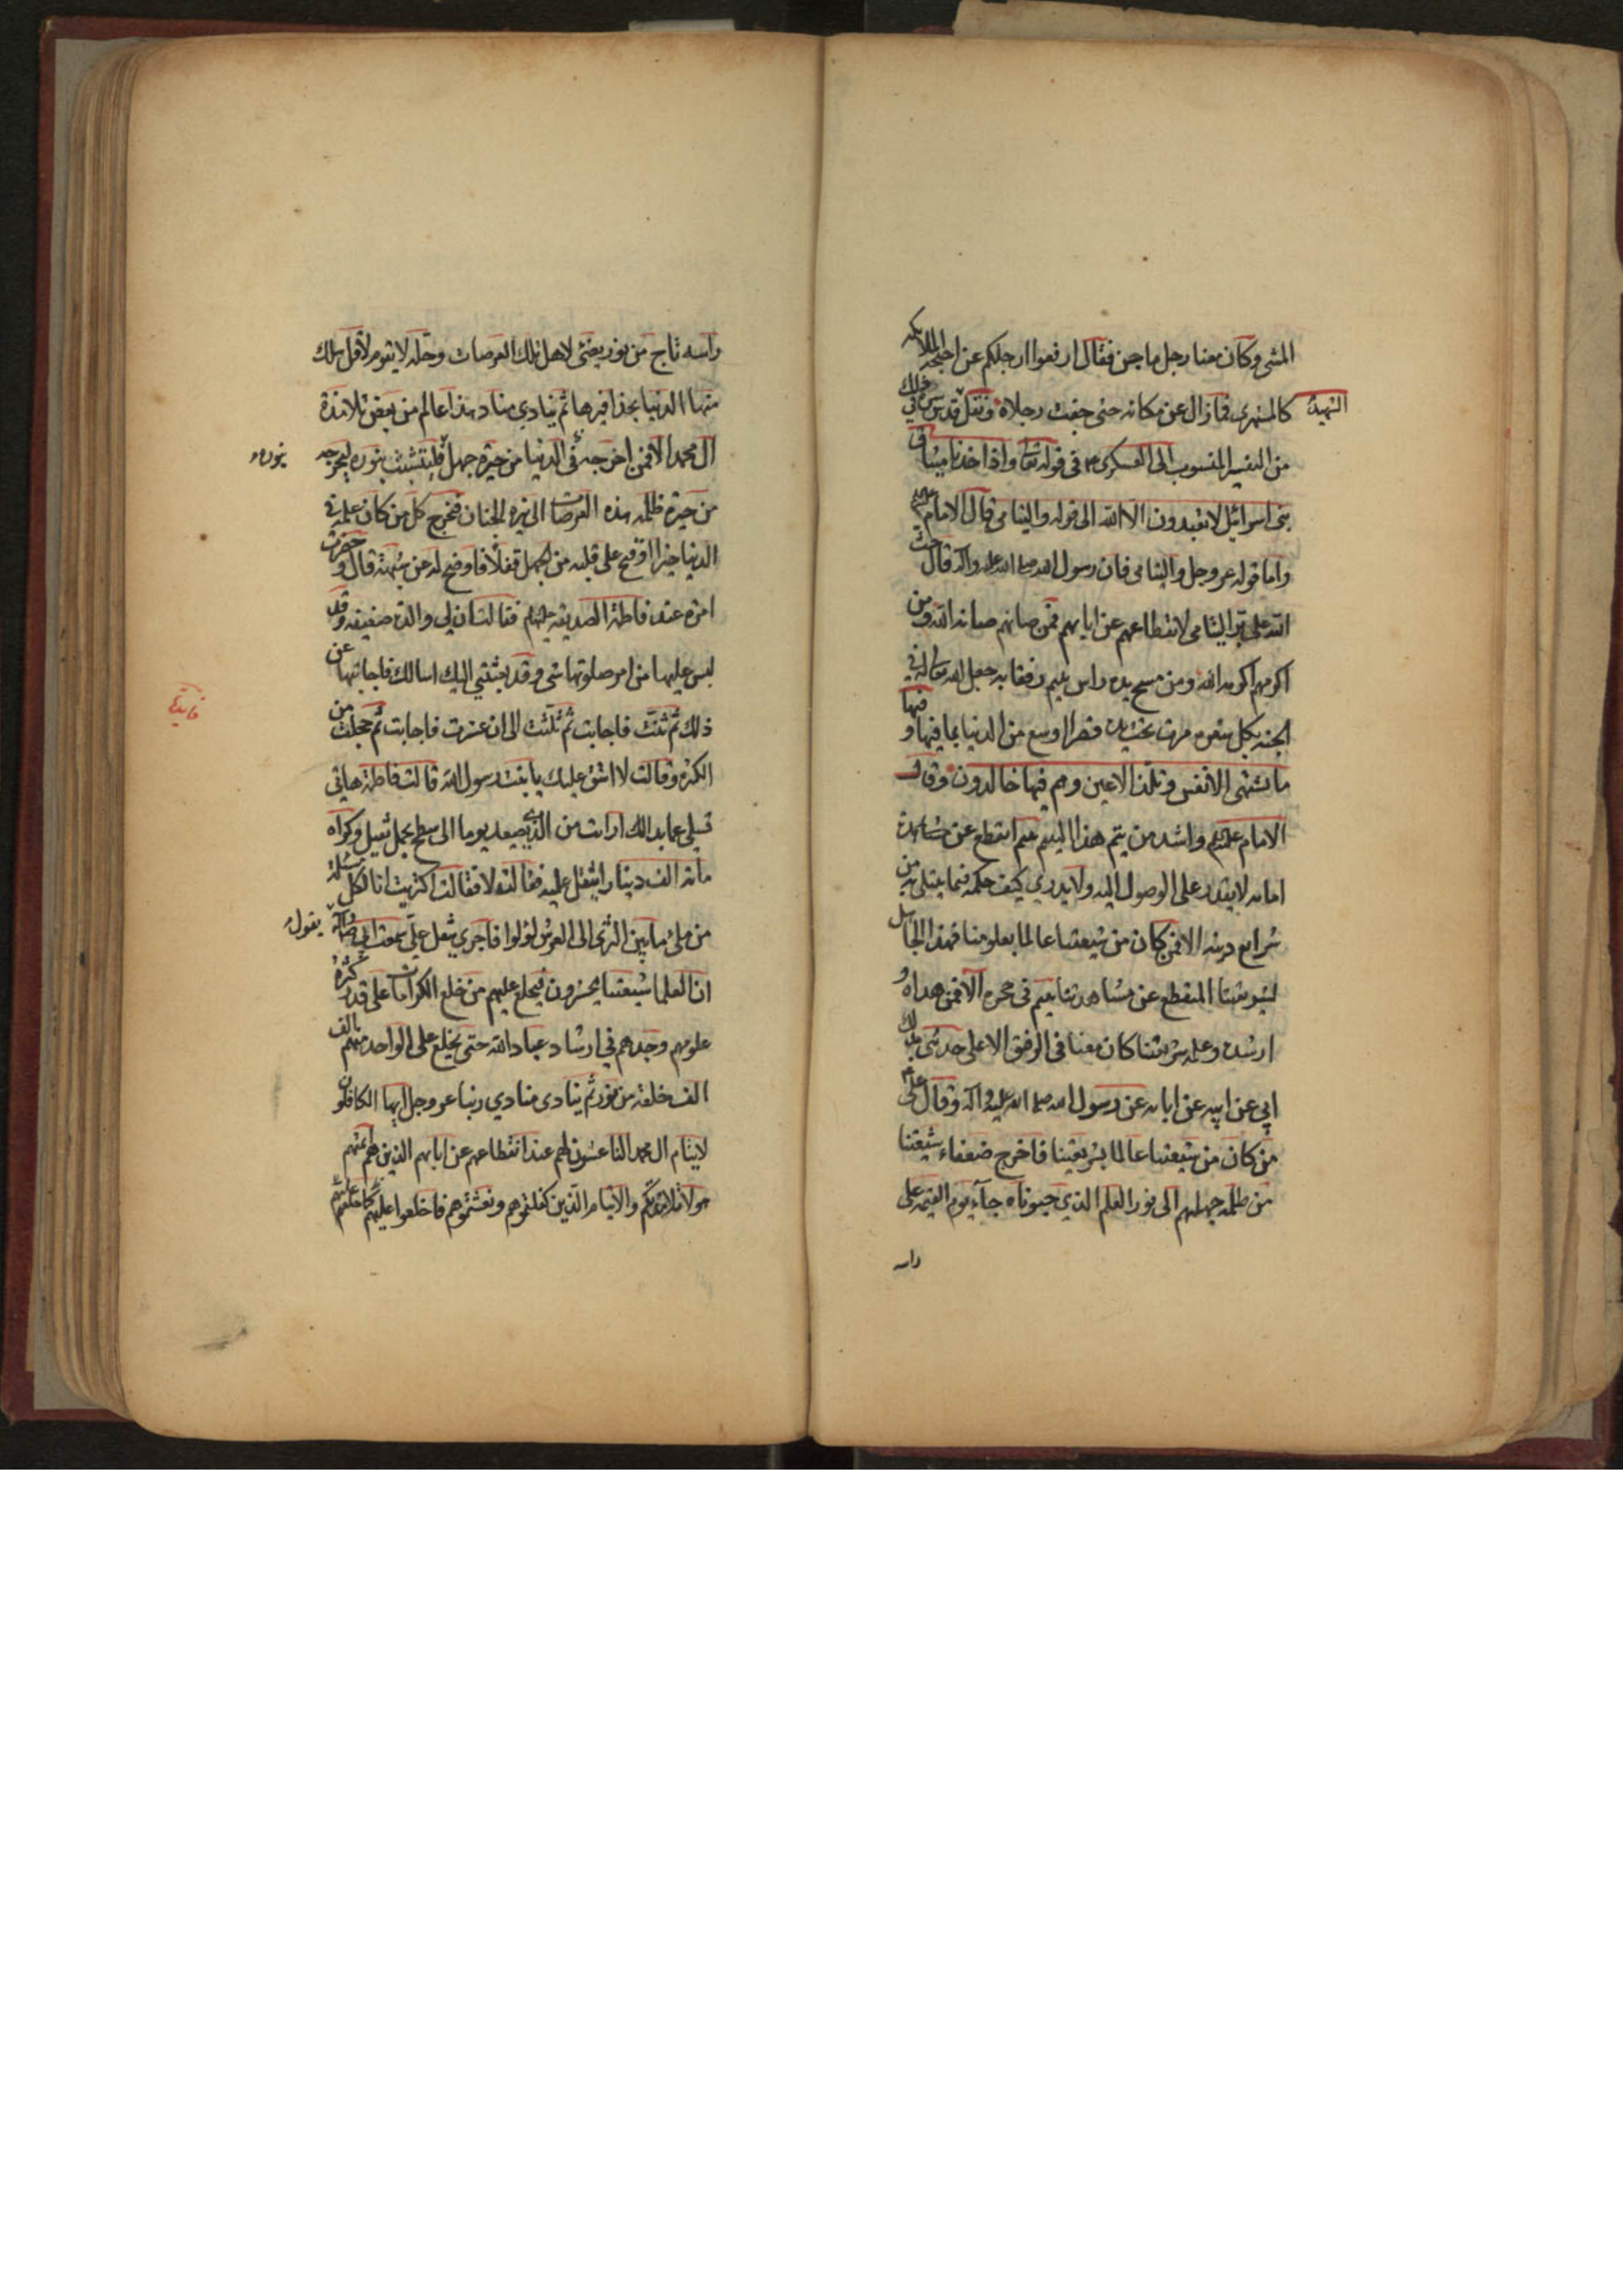 المشي وكان معنا رجل ماجن فقال ارفعوا ارجلكم عن اجنحه الملائكه
كالمستهزى فما زال عن مكانه حتى جفت رجلاه ونقل قدس سره في ذلك
الشهيد
من التفسير المنسوب الى العسكرى ع في قوله تعا واذا اخذنا ميثاق
بنى اسرائيل لا تعبدون الا الله الى قوله واليتامى قال الامام
واما قوله عز وجل واليتامى فان رسول الله صلى الله عليه واله قال حث
الله على بر اليتامى لانقطاعهم عن ابايهم فمن صانهم صانه الله ومن
اكرمهم اكرمه الله ومن مسح يده راس يتيم رفقا به جعل الله تعا له في
الجنه بكل شعره مرت تحت يده قصرا اوسع من الدنيا بما فيها وفيها
ما تشتهى الانفس وتلذ الاعين وهم فيها خالدون وقال
الامام عليه السلم واشد من يتم هذا اليتيم يتيم انقطع عن مشاهدة
امامه لا يقدر على الوصول اليه ولا يدري كيف حكمه فيما يبتلى به من
شرايع دينه الا فمن كان من شيعتنا عالما بعلومنا فهذا الجاهل
بشريعتنا المنقطع عن مشاهدتنا يتيم في حجره الا فمن هداه و
ارشده وعلمه شريعتنا كان معنا في الرفيق الاعلى حدثنى بذلك
ابي عن ابيه عن ابايه عن رسول الله صلى الله عليه واله وقال علي ع
من كان من شيعتنا عالما بشريعتنا فاخرج ضعفاء شيعتنا
من ظلمه جهلهم الى نور العلم الذي حبوناه جآء يوم القيمه على
راسه
راسه تاج من نور يضئ لاهل تلك العرصات وحله لا يقوم لاقل سلك
منها الدنيا بحذافيرها ثم ينادي مناد هذا عالم من بعض تلامذة
ال محمد الا فمن اخرجه في الدنيا من حيرة جهله فليتشبث بنوره ليخرجه
بنوره
من حيرة ظلمه هذه العرصات الى نزه الجنان فخرج كل من كان علمه في
الدنيا خيرا او فتح على قلبه من الجهل قفلا او اوضح له عن شبهة قال وحضرت
امرة عند فاطمة الصديقه عليها السلام فقالت ان لي والدة ضعيفه وقد
لبس عليها من امر صلوتها شى وقد بعثتني اليك اسالك فاجابتها عن
ذلك ثم ثنت فاجابت ثم ثلثت الى ان عشرت فاجابت ثم خجلت من
الكثره وقالت لا اشق عليك يا بنت رسول الله قالت فاطمة هاتي
فايدة
وسلي عما بدالك ارايت من الذي يصعد يوما الى سطح بحمل ثقيل وكراه
مائة الف دينار ايثقل عليه فقالت لا فقالت اكتريت انا لكل مسئلة
من ملئ ما بين الثرى الى العرش لؤلوا فاحرى يثقل علي سمعت ابي
يقول
ان العلما شيعتنا يحشرون فيخلع عليهم من خلع الكرامات على قدر كثرة
علومهم وجدهم في ارشاد عباد الله حتى يخلع على الواحد منهم الف
الف خلعة من نور ثم ينادى منادي ربنا عز وجل ايها الكافلون
لايتام ال محمد الناعشون لهم عند انقطاعهم عن ابايهم الذين هم ائمتهم
هولاء تلامذتكم والايتام الذين كفلتموهم ونعشتموهم فاخلعوا عليهم كما خلعتم